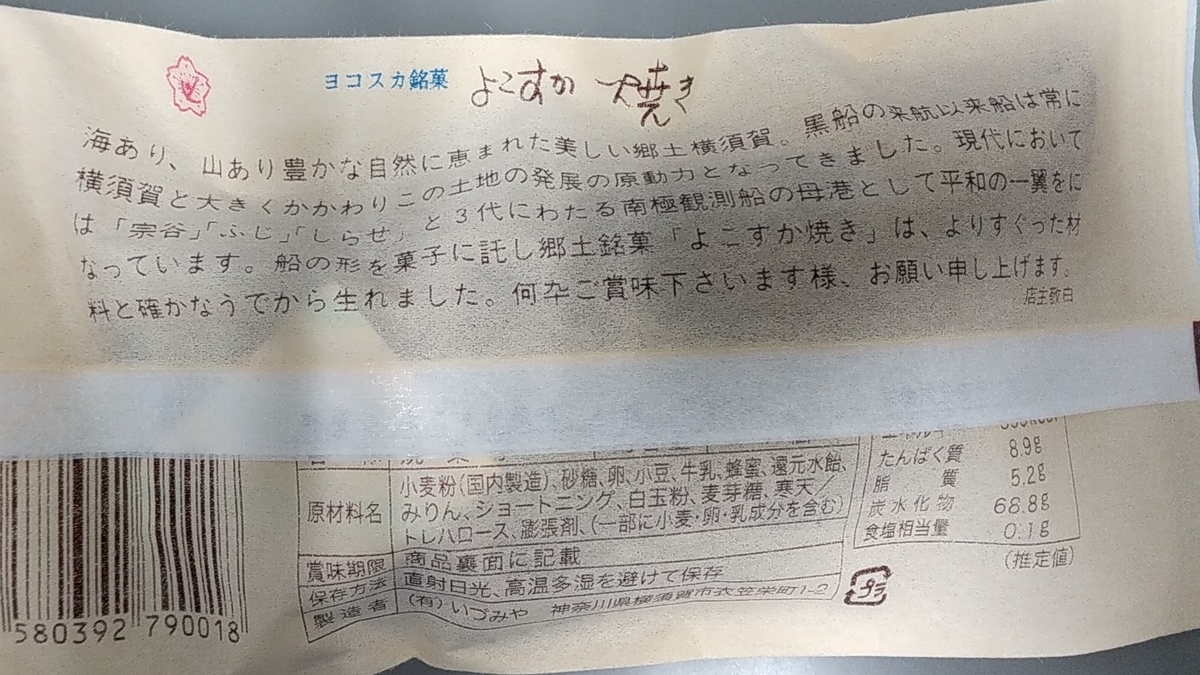 ヨコスカ銘菓 よこすか焼き
海あり、山あり豊かな自然に恵まれた美しい郷土横須賀。黒船の来航以来船は常に
横須賀と大きくかかわりこの土地の発展の原動力となってきました。現代において
は「宗谷」「ふじ」「しらせ」と3代にわたる南極観測船の母港として平和の一翼をに
なっています。船の形を菓子に託し郷土銘菓「よこすか焼き」は、よりすぐった材
料と確かなうでから生れました。何卆ご賞味下さいます様、お願い申し上げます。
店主敬白
原材料名 小麦粉(国内製造)、砂糖、卵、小豆、牛乳、蜂蜜、還元水飴、
みりん、ショートニング、白玉粉、麦芽糖、寒天/
トレハロース、膨張剤、(一部に小麦・卵・乳成分を含む)
賞味期限 商品裏面に記載
保存方法 直射日光、高温多湿を避けて保存
製造者 (有)いづみや 神奈川県横須賀市衣笠栄町1-2
たんぱく質 8.9g
脂質 5.2g
炭水化物 68.8g
食塩相当量 0.1g
(推定値)
プラ
580392 790018